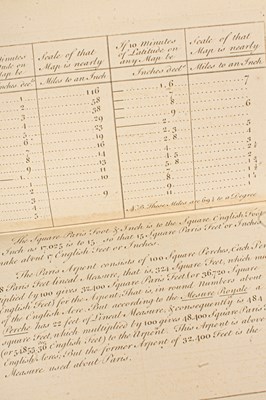 Minutes
Latitude on
Map be
Inches dec.
Scale of that
Map is nearly
Miles to an Inch
116
58
38
29
23
19
16
14
13
11
10
9
If 10 Minutes
of Latitude on
any Map be
Inches decl.
1. 6
7
8
9
2.
2. 3
2. 8
3.
4.
4. 5
5. 8
8.
9
11
Scale of that
Map is nearly
Miles to an Inch
7
N.B. Those Miles are 69½ to a Degree
The Square Paris Foot & Inch is to the Square English Foot
Inch as 17,025 is to 15. so that 15 Square Paris Feet or In
make about 17 English Feet or Inches.
The Paris Arpent consists of 100 Square Perches, Each Per
18 Paris Feet lineal Measure, that is, 324 Square Feet, which mu
tiplied by 100 gives 32,400 Square Paris Feet (or 36,720 Square
English Feet) for the Arpent: That is, in round Numbers about
of the English Acre. But according to the Mesure Royale a
Perche has 22 feet of Lineal Measure, & consequently is 484
square Feet, which multiplied by 100 gives 48,400 Square Paris F
(or 54855.36 English Feet) to the Arpent. This Arpent is above
English Acre; But the former Arpent of 32,400 Feet is the
Measure used about Paris.